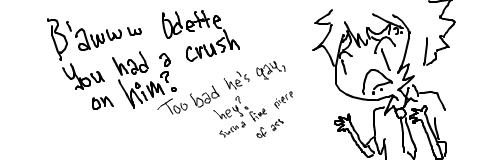 B'awww Odette
You had a crush
on him?
Too bad he's gay,
hey?
such a fine piece
of ass